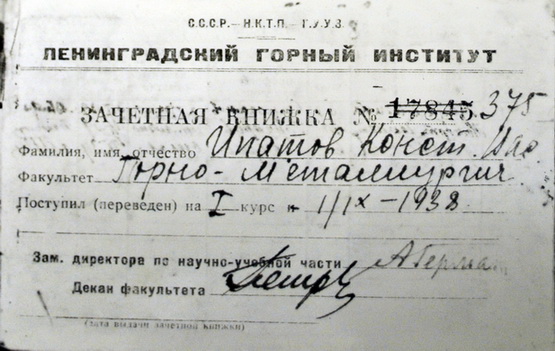 С.С.С.Р.—Н.К.Т.П.—Г.У.У.З.
ЛЕНИНГРАДСКИЙ ГОРНЫЙ ИНСТИТУТ
ЗАЧЕТНАЯ КНИЖКА № 17845 375
Фамилия, имя, отчество Ипатов Конст.
Факультет Горно-Металлургич
Поступил (переведен) на I курс 1/IX-1938
Зам. директора по научно-учебной части
Декан факультета
(дата выдачи зачетной книжки)